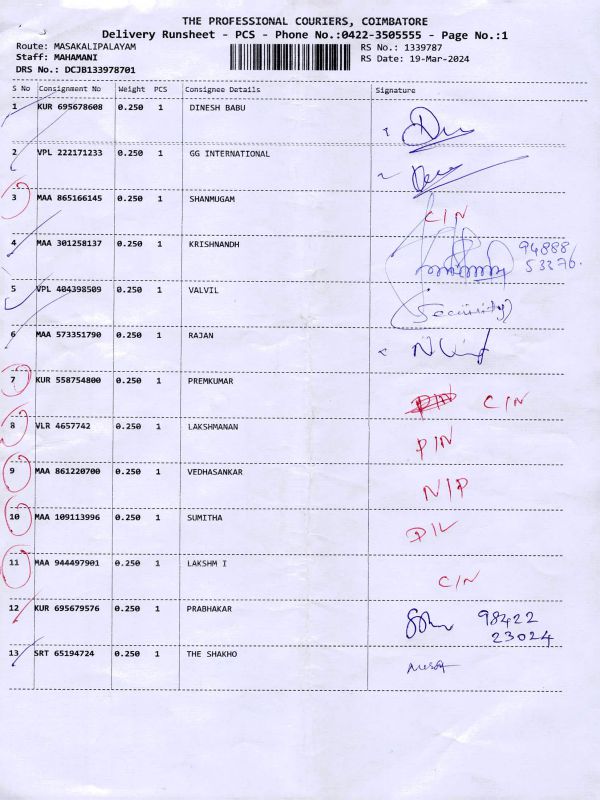 THE PROFESSIONAL COURIERS, COIMBATORE
Delivery Runsheet - PCS - Phone No.:0422-3505555 - Page No.:1
Route: MASAKALIPALAYAM RS No.: 1339787
Staff: MAHAMANI RS Date: 19-Mar-2024
DRS No.: DCJB133978701
S No Consignment No Weight PCS Consignee Details Signature
1 KUR 695678608 0.250 1 DINESH BABU
2 VPL 222171233 0.250 1 GG INTERNATIONAL
3 MAA 865166145 0.250 1 SHANMUGAM C/N
4 MAA 301258137 0.250 1 KRISHNANDH 94888
53376.
5 VPL 404398509 0.250 1 VALVIL (Security)
6 MAA 573351790 0.250 1 RAJAN
7 KUR 558754800 0.250 1 PREMKUMAR C/N
8 VLR 4657742 0.250 1 LAKSHMANAN P/N
9 MAA 861220700 0.250 1 VEDHASANKAR N/P
10 MAA 109113996 0.250 1 SUMITHA D/L
11 MAA 944497901 0.250 1 LAKSHM I C/N
12 KUR 695679576 0.250 1 PRABHAKAR 98422
23024
13 SRT 65194724 0.250 1 THE SHAKHO